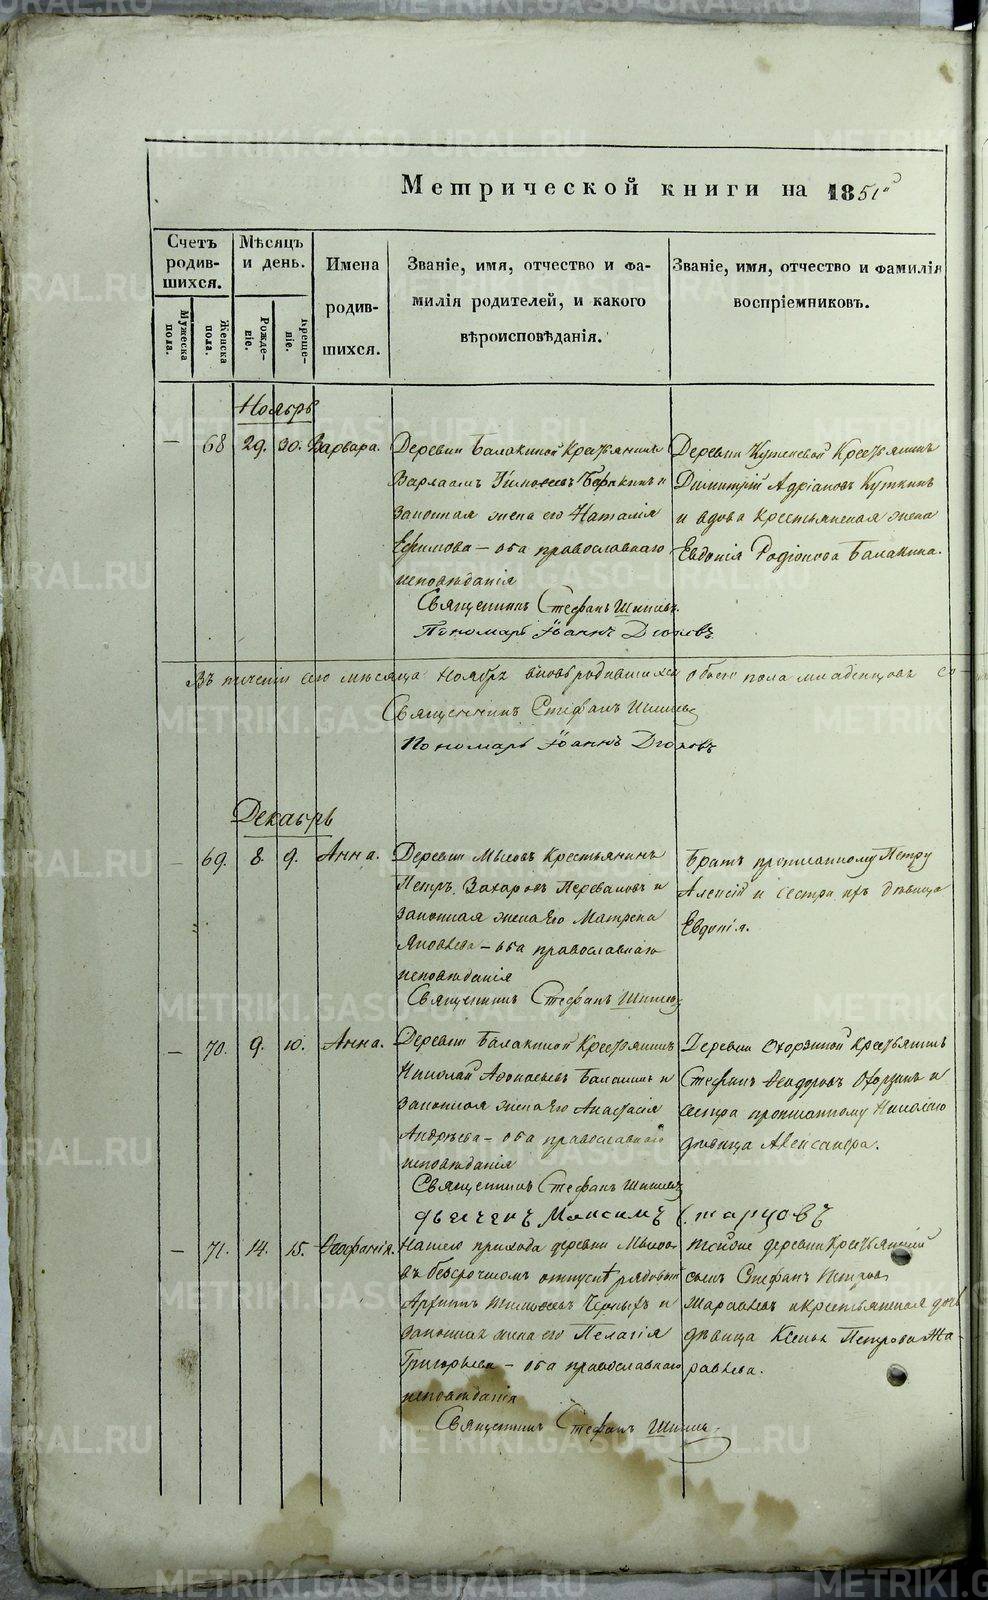 METRIKI.GASO-URAL.RU
Метрической книги на 1851й
Счетъ родив-шихся.
Мужеска пола.
Женска пола.
Мѣсяцъ и день.
Рожде-нiе.
Креще-нiе.
Имена родив-шихся.
Званiе, имя, отчество и фа-
милiя родителей, и какого
вѣроисповѣданiя.
Званiе, имя, отчество и фамилiя
воспрiемниковъ.
Ноябрь
— 68 29. 30. Варвара.
Деревни Балакиной Крестьянинъ
Варлаамъ
законная жена его Наталiя
Ефимова — оба православнаго
исповѣданiя
Священникъ Стефанъ
Пономарь Iоаннъ
Деревни Крестьянинъ
Димитрiй Адрiановъ Куткинъ
и вдова крестьянская жена
Евдокiя Родiонова Балакина.
Въ теченiи сего мѣсяца Ноября вновь родившихся обоего пола младенцовъ со-
Священникъ Стефанъ
Пономарь Iоаннъ
Декабрь
— 69. 8. 9. Анна.
Деревни Мысовъ Крестьянинъ
Петръ Захаровъ Переваловъ и
законная жена его Матрена
Яковлева — оба православнаго
исповѣданiя
Священникъ Стефанъ
Братъ прописанному Петру
Алексiй и сестра ихъ дѣвица
Евдокiя.
— 70. 9. 10. Анна.
Деревни Балакиной Крестьянинъ
Николай Афонасьевъ Балакинъ и
законная жена его Анастасiя
Андрѣева — оба православнаго
исповѣданiя
Священникъ Стефанъ
Дьячекъ Максимъ Старцовъ
Деревни Охорзиной Крестьянинъ
Стефанъ Ѳеодоровъ Охорзинъ и
сестра прописанному Николаю
дѣвица Александра.
— 71. 14. 15. Ѳеофанiя.
Нашего прихода деревни
въ безсрочномъ отпускѣ рядовый
Архипъ Тимоѳеевъ Черныхъ и
законная жена его Пелагiя
Григорьева — оба православнаго
исповѣданiя
Священникъ Стефанъ
Тойже деревни Крестьянскiй
сынъ Стефанъ Петровъ
Жаравлевъ и крестьянская дочь
дѣвица Ксенья Петрова Жа-
равлева.